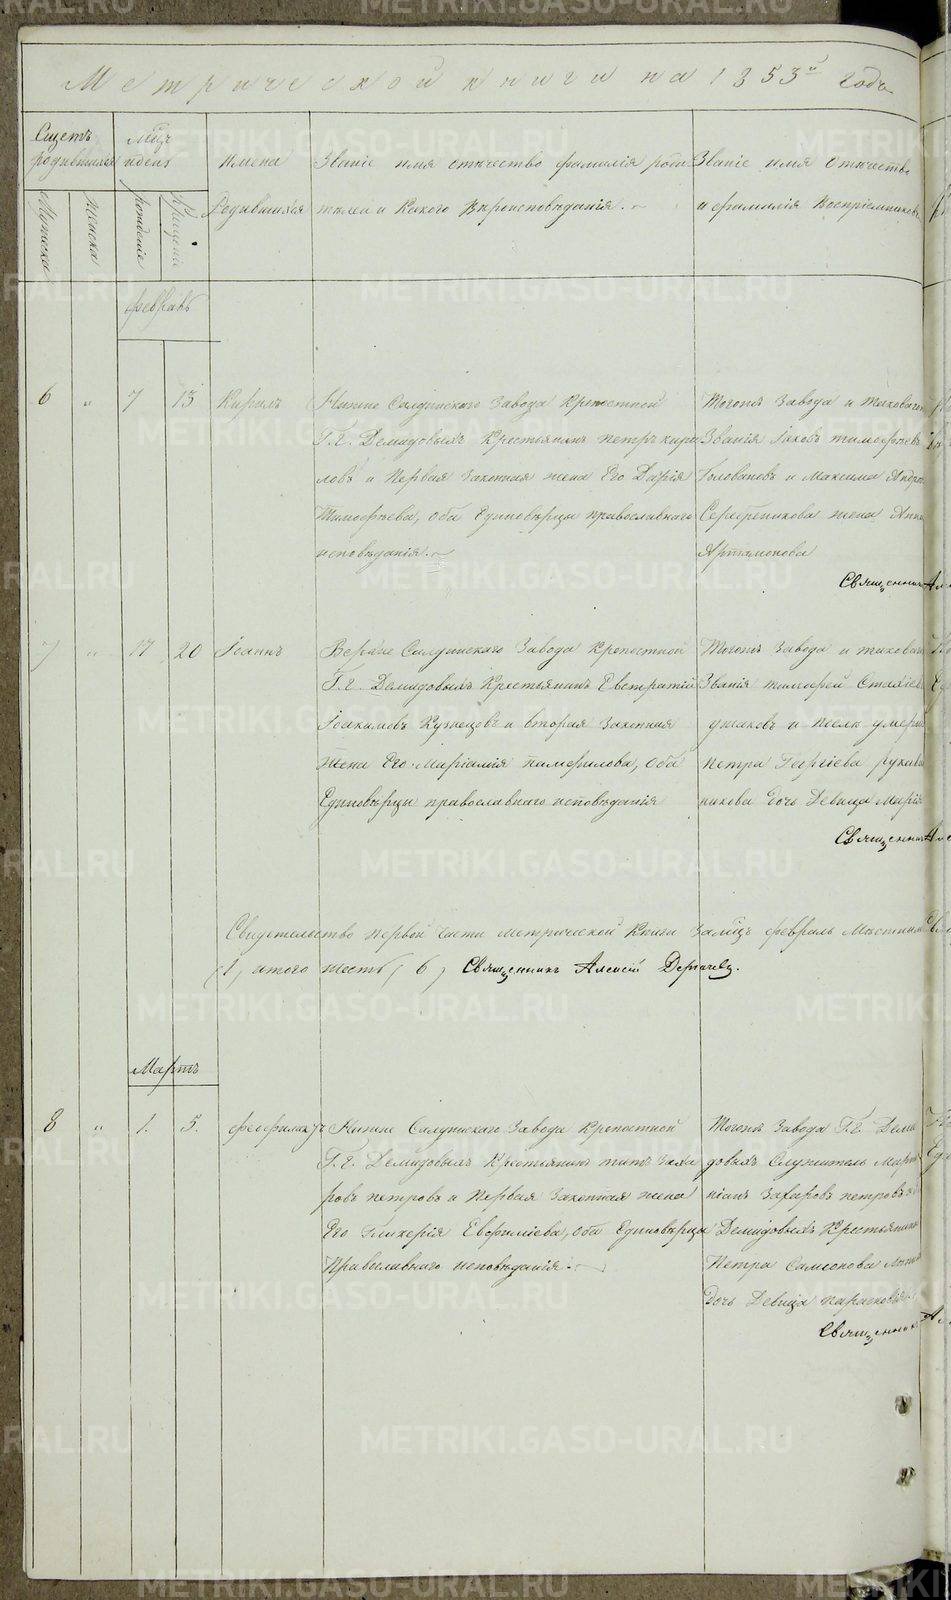 Метрической книги на 1853й годъ
Счетъ родившихся
Мѣц. и день
Имена Родившихся
Званіе имя отчество фамилія роди-
телей и Какого Вѣроисповѣданія.
Званіе имя Отчество
и фамилія Воспріемниковъ
Мужеска
Женска
рожденіе
Крещеніе
февраль
6 " 7 13 Кирилъ
Нижне Салдинскаго Завода Крепостной
Г.г. Демидовыхъ Крестьянинъ петръ кири-
ловъ и Первая Законная жена Его Дарія
Тимофѣева, оба Единовѣрцы православнаго
исповѣданія.
Тогожъ Завода и таковагожъ
Званія Іаковъ тимофѣевъ
Головановъ и Максима Андре
Серебреникова жена Анна
Артамонова
Священникъ
7 " 17 20 Іоаннъ
Верхне Салдинскаго Завода Крепостной
Г.г. Демидовыхъ Крестьянинъ Евстратій
Іоакимовъ Кузнецовъ и вторая Законная
Жена Его Маріамія памфилова, Оба
Единовѣрцы православнаго исповѣданія
Тогожъ Завода и таковаго
Званія тимофей
ушаковъ и умерш
петра Георгіева рукави
никова дочь Девица Марія
Священникъ
Свидетельство первой части метрической Книги За мѣц. февраль
(1, итого шесть (6, Священникъ Алексій Дергачевъ.
Мартъ
8 " 1. 5. феофилактъ
Нижне Салдинскаго Завода Крепостной
Г.г. Демидовыхъ Крестьянинъ титъ Заха
ровъ петровъ и Первая Законная жена
Его Гликерія Евфиміева, Оба Единовѣрцы
Православнаго исповѣданія.
Тогожъ Завода Г.г. Деми
довыхъ Служитель Марти
ніанъ Захаровъ петровъ
Демидовыхъ Крестьянина
Петра Самсонова
дочь Девица параскова
Священникъ
METRIKI.GASO-URAL.RU